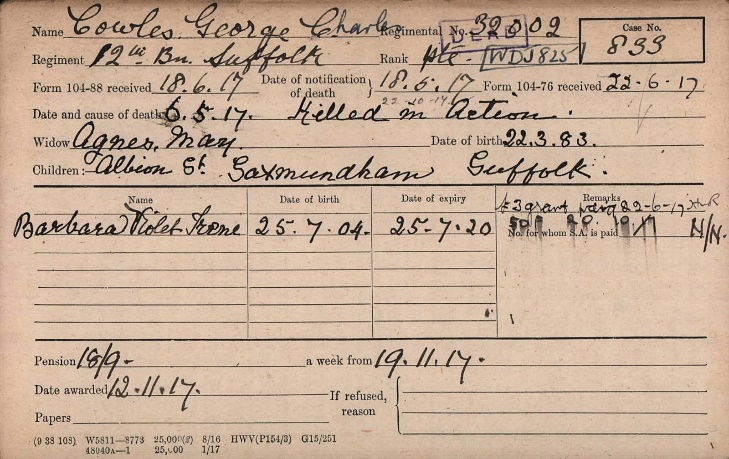 Name Cowles George Charles Regimental No. 32002 Case No.
DEAD 833
Regiment 12th Bn. Suffolk Rank Pte. WDJ825
Form 104-88 received 18.6.17 Date of notification of death 18.5.17 Form 104-76 received 22-6-17
22-10-17
Date and cause of death 6.5.17. Killed in Action.
Widow Agnes May. Date of birth 22.3.83.
Children: Albion St. Saxmundham Suffolk.
Name Date of birth Date of expiry Remarks
£3 grant 22-6-17
Barbara Violet Irene 25-7-04- 25-7-20 No. for whom S.A. is paid N/N.
Pension 18/9- a week from 19.11.17.
Date awarded 12.11.17. If refused, reason
Papers
(9 38 108) W5811—8773 25,000(2) 8/16 HWV(P154/3) G15/251
48040A—1 25,000 1/17